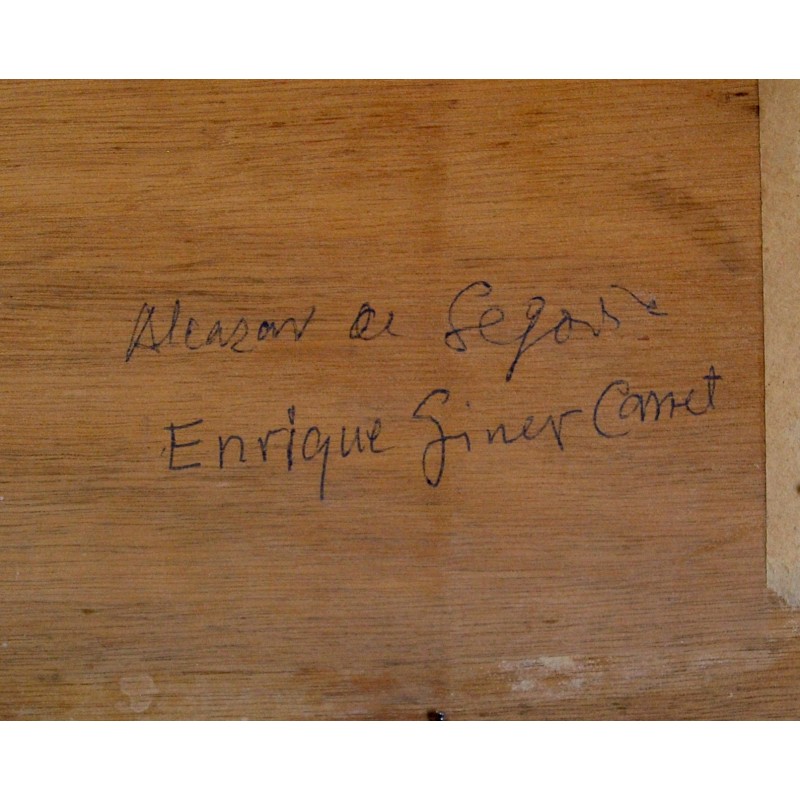 Alcazar de Segovia
Enrique Giner Carret